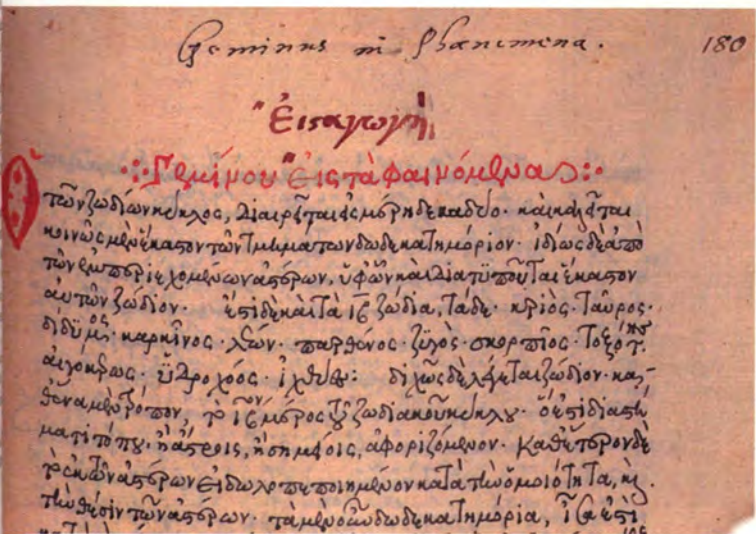 Geminus in Phanomena. 180
Εἰσαγωγή
Γεμίνου Εἰς τὰ φαινόμενα
Ὁ τῶν ζωδίων κύκλος, διαιρεῖται εἰς μέρη δεκαδύο· καὶ καλεῖται
κοινῶς μὲν ἕκαστον τῶν τμημάτων δωδεκατημόριον· ἰδίως δὲ ἀπὸ
τῶν ἐμπεριεχομένων ἀστέρων, ὑφ' ὧν καὶ διατυποῦται ἕκαστον
αὐτῶν ζώδιον· ἔστι δὲ καὶ τὰ ιβ ζώδια, τάδε· κριός· ταῦρος·
δίδυμος· καρκῖνος· λέων· παρθένος· ζυγός· σκορπίος· τοξότης·
αἰγόκερως· ὑδροχόος· ἰχθύες: διχῶς δὲ λέγεται ζώδιον· καθ'
ἕνα μὲν τρόπον, τὸ ιβον μέρος τοῦ ζωδιακοῦ κύκλου· ὅ ἐστι διάστη
μά τι τόπου, ἢ ἄστροις, ἢ σημείοις, ἀφοριζόμενον· καθ' ἕτερον δὲ
τὸ ἐκ τῶν ἀστέρων εἴδωλον πεποιημένον κατὰ τὴν ὁμοιότητα, καὶ
τὴν θέσιν τῶν ἀστέρων· τὰ μὲν οὖν δωδεκατημόρια, ἴσα ἐστὶ